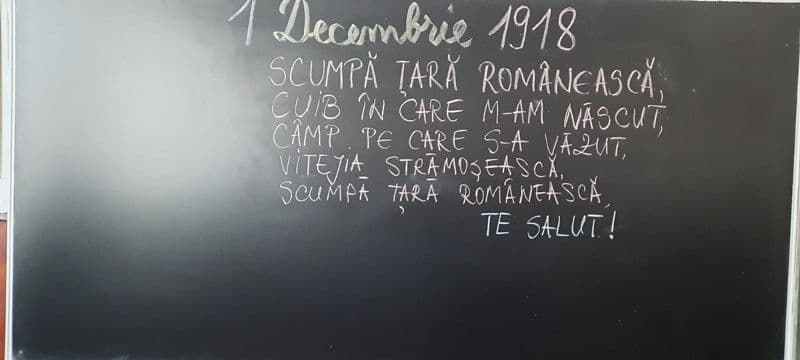 1 Decembrie 1918
SCUMPĂ ȚARĂ ROMÂNEASCĂ,
CUIB ÎN CARE M-AM NĂSCUT,
CÂMP PE CARE S-A VĂZUT,
VITEJIA STRĂMOȘEASCĂ,
SCUMPĂ ȚARĂ ROMÂNEASCĂ,
TE SALUT!